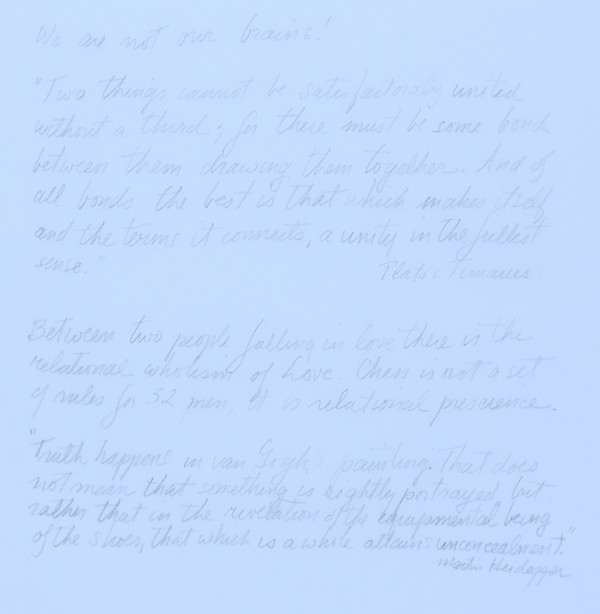 We are not our brains!
"Two things cannot be satisfactorally united
without a third; for there must be some bond
between them drawing them together. And of
all bonds the best is that which makes itself
and the terms it connects, a unity in the fullest
sense."
Plato: Timaeus
Between two people falling in love there is the
relational wholism of Love. Chess is not a set
of rules for 32 men, it is relational prescience.
"Truth happens in van Gogh's painting. That does
not mean that something is rightly portrayed, but
rather that in the revelation of the equipmental being
of the shoes, that which is a whole attains unconcealment."
Martin Heidegger